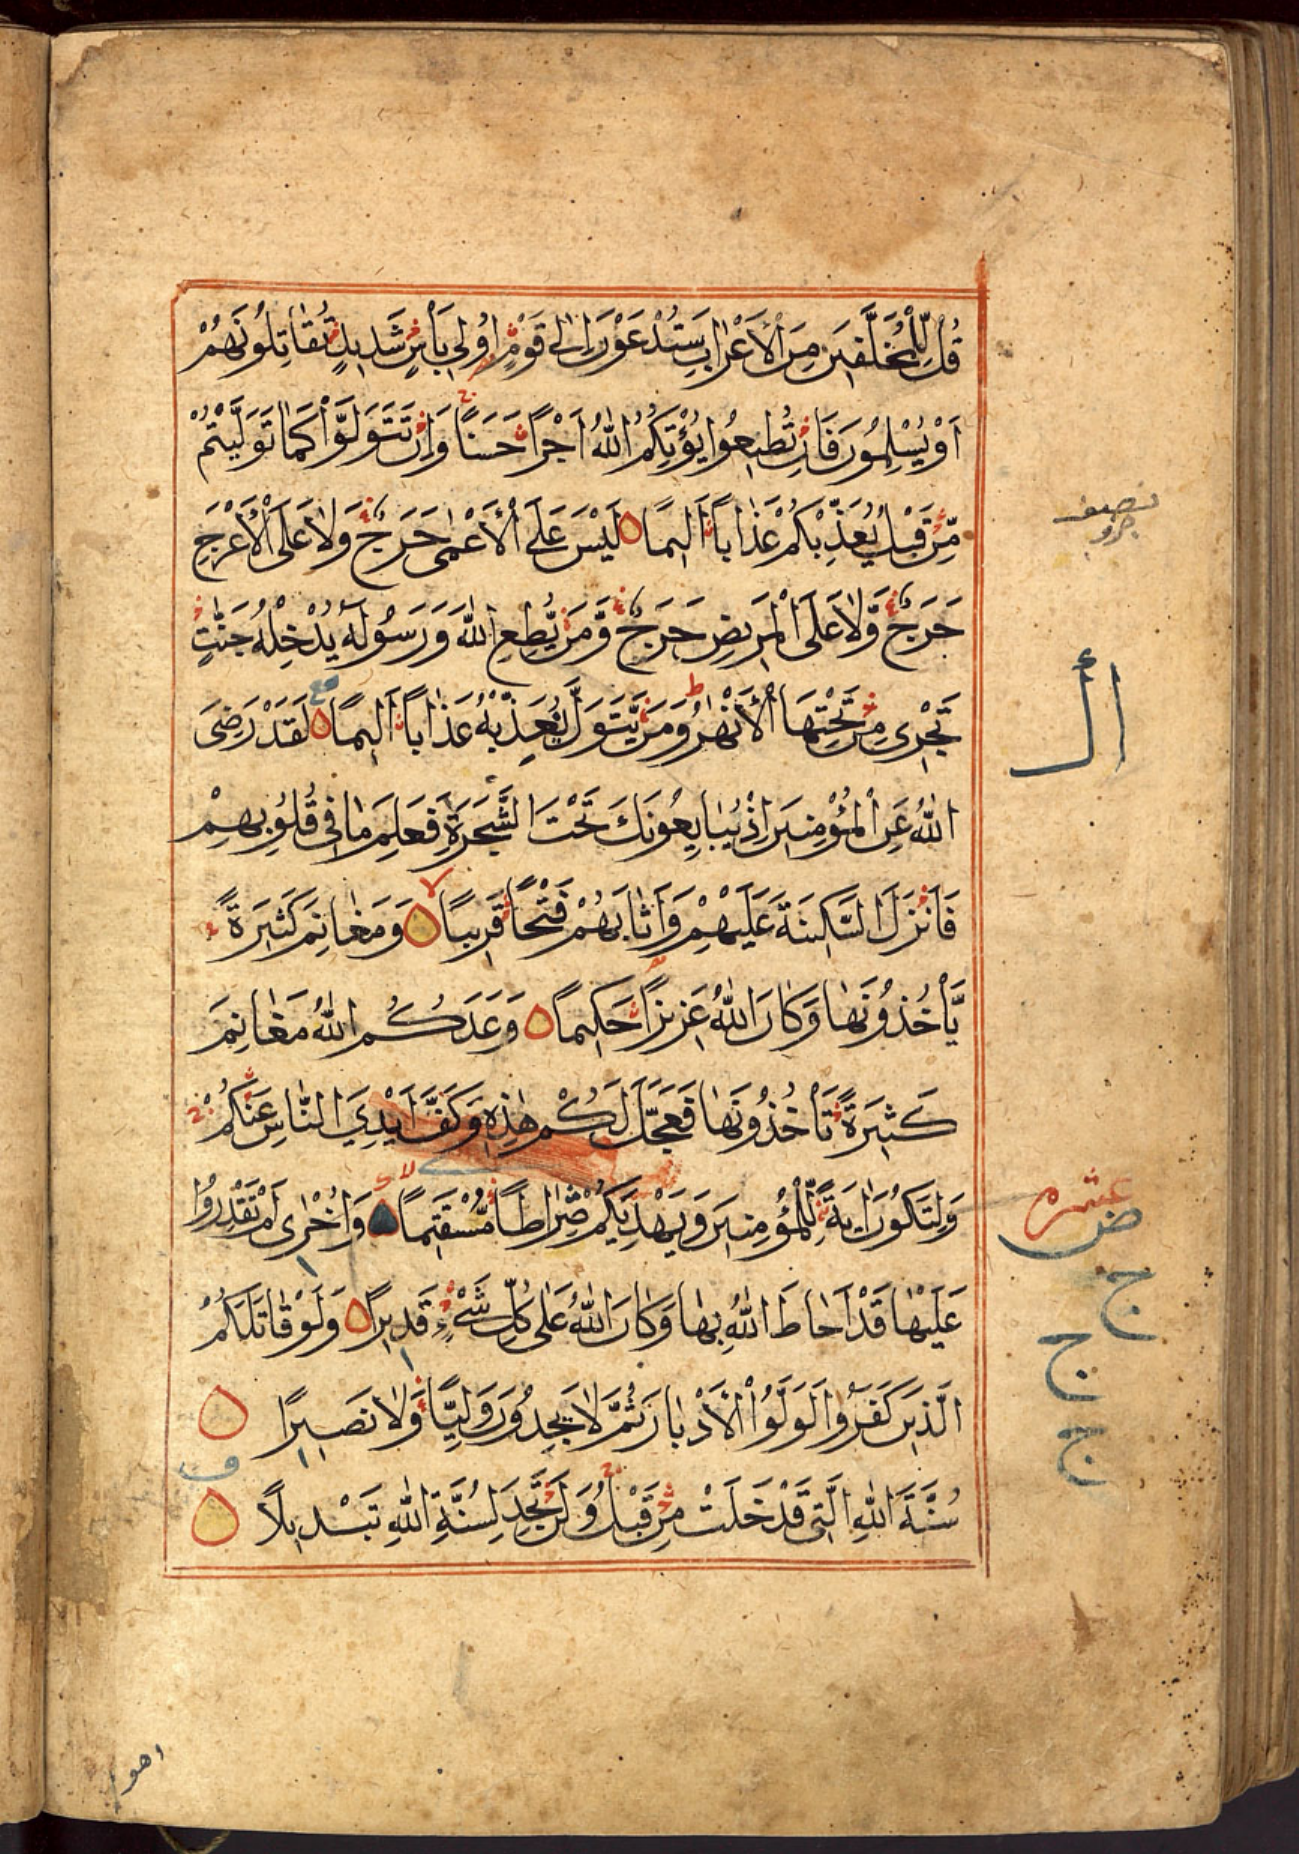 قُلْ لِلْمُخَلَّفِينَ مِنَ الْأَعْرَابِ سَتُدْعَوْنَ إِلَى قَوْمٍ أُولِي بَأْسٍ شَدِيدٍ تُقَاتِلُونَهُمْ
أَوْ يُسْلِمُونَ فَإِنْ تُطِيعُوا يُؤْتِكُمُ اللهُ أَجْرًا حَسَنًا وَإِنْ تَتَوَلَّوْا كَمَا تَوَلَّيْتُمْ
نصف جزو
مِّنْ قَبْلُ يُعَذِّبْكُمْ عَذَابًا أَلِيمًا لَيْسَ عَلَى الْأَعْمَى حَرَجٌ وَلَا عَلَى الْأَعْرَجِ
حَرَجٌ وَّلَا عَلَى الْمَرِيضِ حَرَجٌ وَّمَنْ يُّطِعِ اللهَ وَرَسُولَهُ يُدْخِلْهُ جَنّٰتٍ
تَجْرِي مِنْ تَحْتِهَا الْأَنْهٰرُ وَمَنْ يَّتَوَلَّ يُعَذِّبْهُ عَذَابًا أَلِيمًا لَقَدْ رَضِيَ
اللهُ عَنِ الْمُؤْمِنِينَ إِذْ يُبَايِعُونَكَ تَحْتَ الشَّجَرَةِ فَعَلِمَ مَا فِي قُلُوبِهِمْ
فَأَنْزَلَ السَّكِينَةَ عَلَيْهِمْ وَأَثَابَهُمْ فَتْحًا قَرِيبًا وَمَغَانِمَ كَثِيرَةً
يَّأْخُذُونَهَا وَكَانَ اللهُ عَزِيزًا حَكِيمًا وَعَدَكُمُ اللهُ مَغَانِمَ
كَثِيرَةً تَأْخُذُونَهَا فَعَجَّلَ لَكُمْ هٰذِهِ وَكَفَّ أَيْدِيَ النَّاسِ عَنْكُمْ
عشره
وَلِتَكُونَ اٰيَةً لِّلْمُؤْمِنِينَ وَيَهْدِيَكُمْ صِرَاطًا مُّسْتَقِيمًا وَأُخْرٰى لَمْ تَقْدِرُوا
عَلَيْهَا قَدْ أَحَاطَ اللهُ بِهَا وَكَانَ اللهُ عَلَى كُلِّ شَيْءٍ قَدِيرًا وَلَوْ قَاتَلَكُمُ
الَّذِينَ كَفَرُوا لَوَلَّوُا الْأَدْبَارَ ثُمَّ لَا يَجِدُونَ وَلِيًّا وَّلَا نَصِيرًا
سُنَّةَ اللهِ الَّتِي قَدْ خَلَتْ مِنْ قَبْلُ وَلَنْ تَجِدَ لِسُنَّةِ اللهِ تَبْدِيلًا